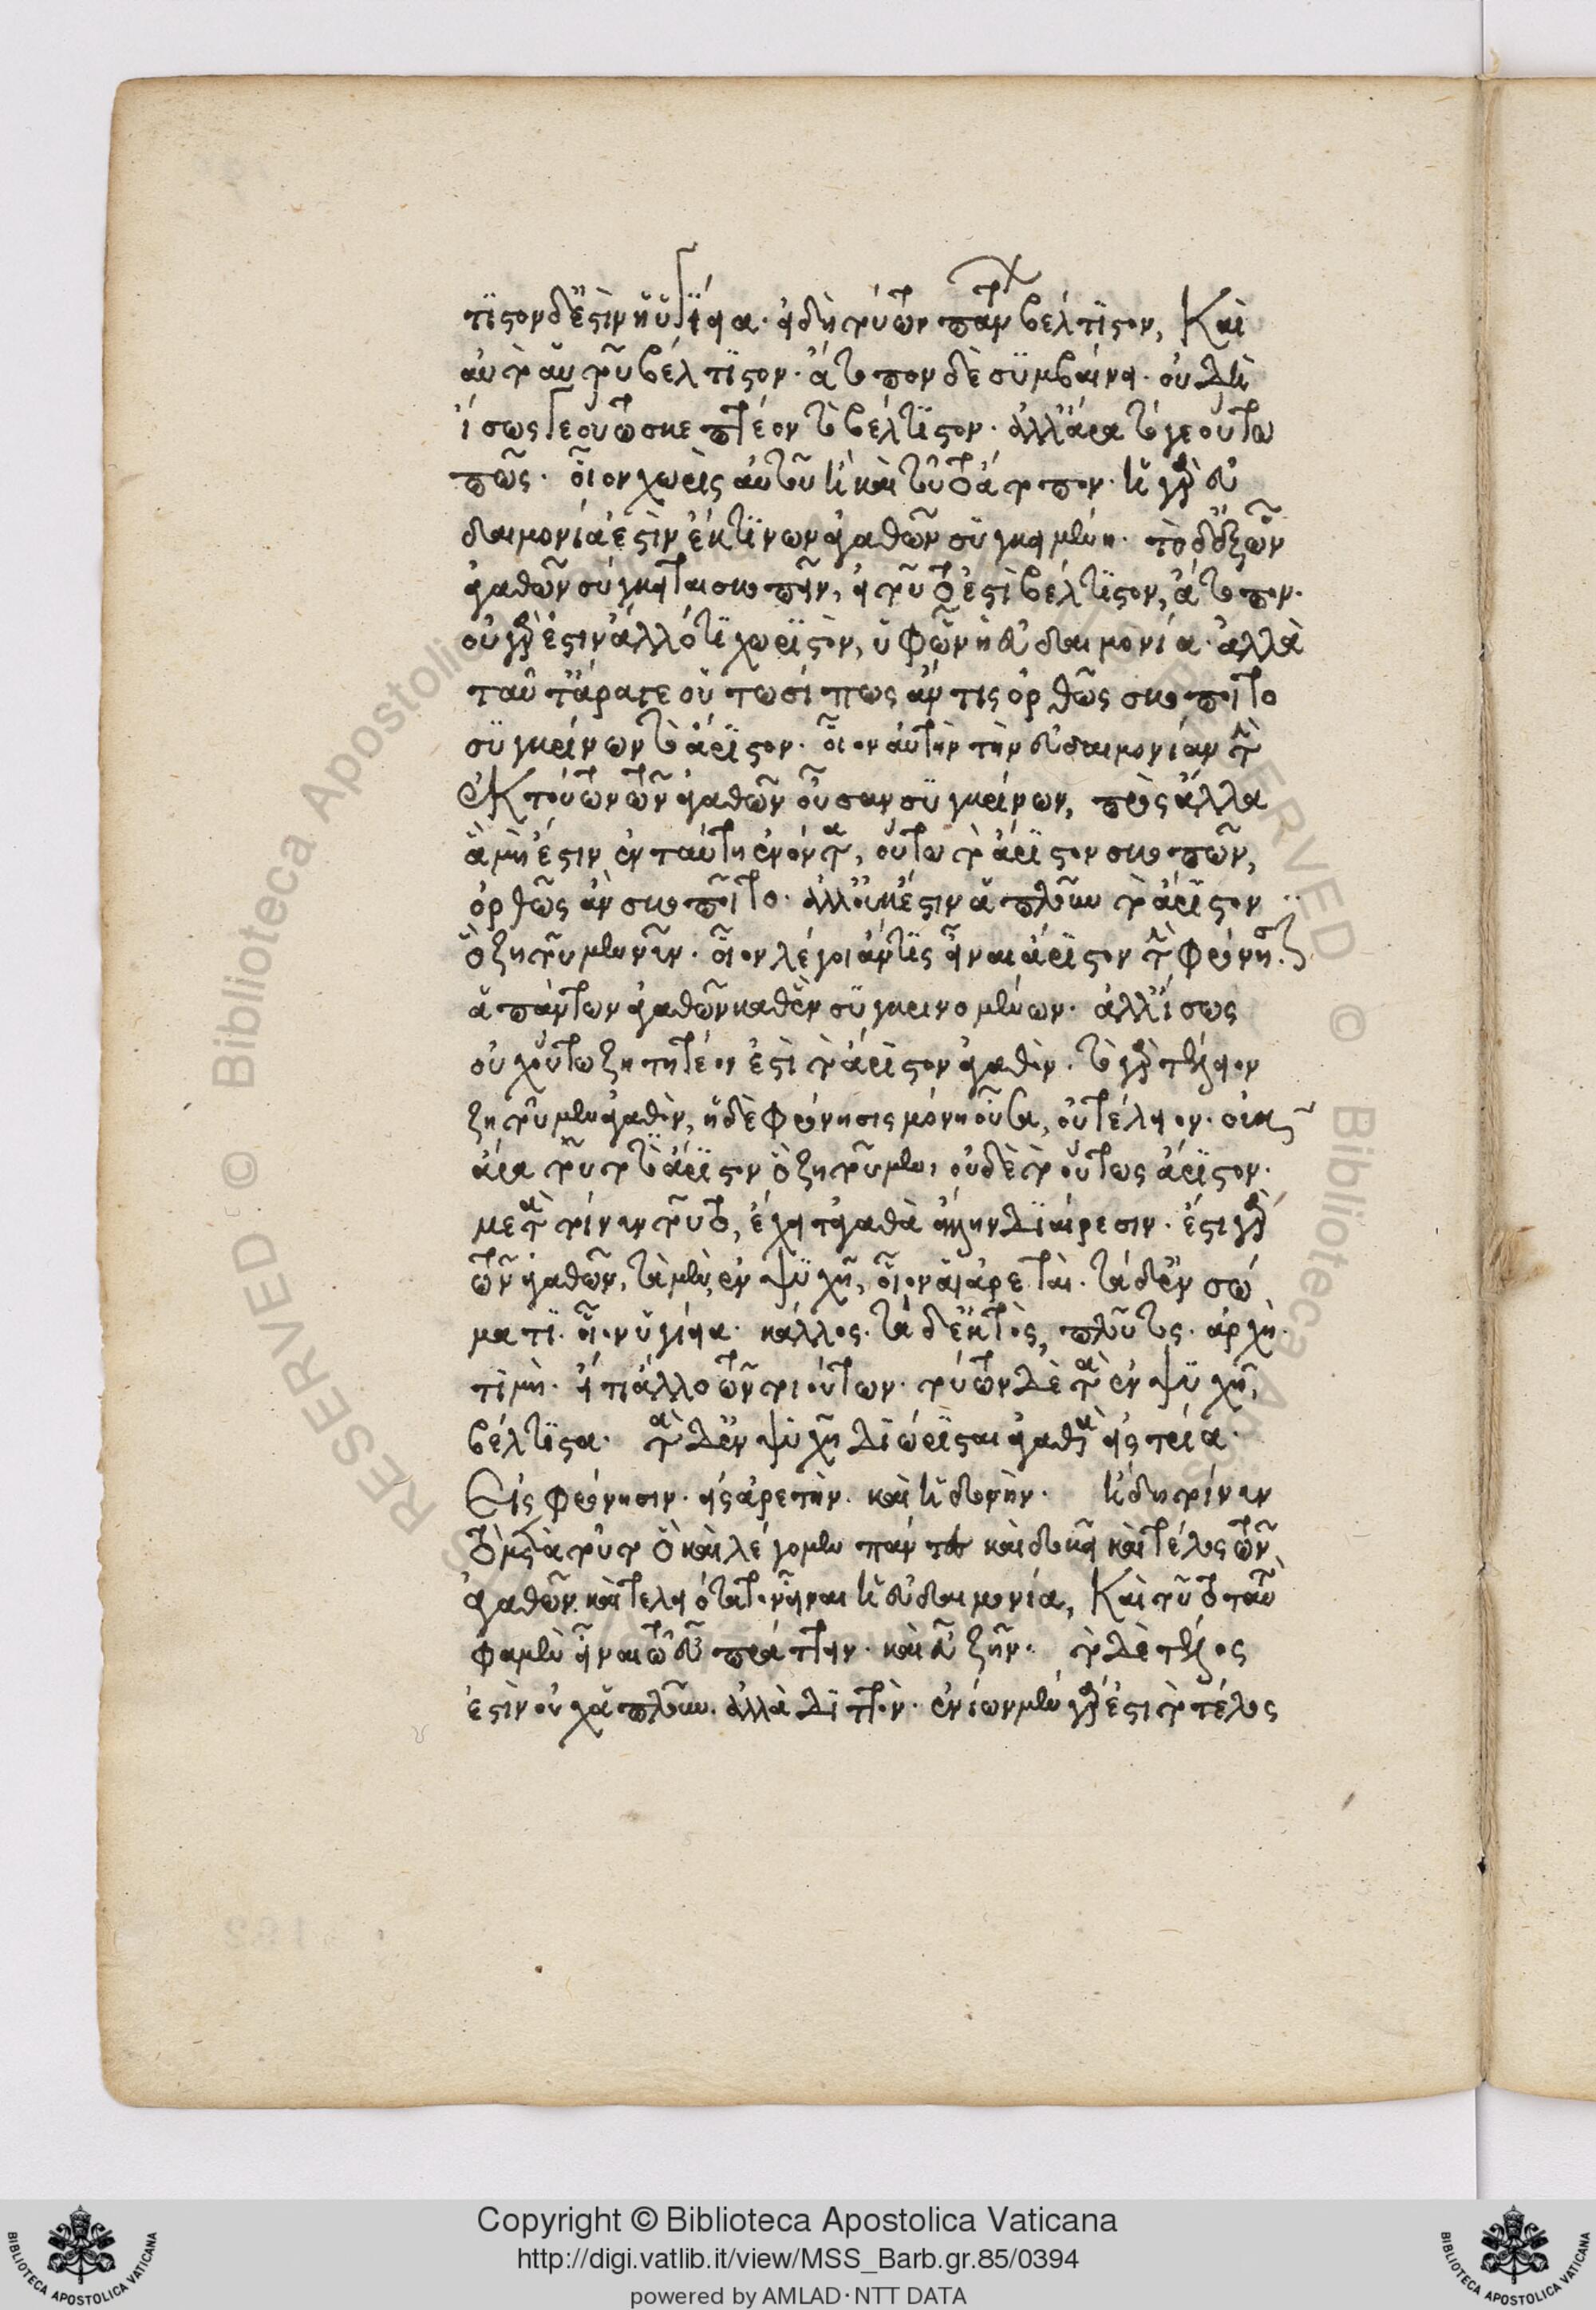 τιστον δ' ἐστὶν ἡ ὑγίεια. εἰ δὴ τούτων πάντων βέλτιστον, Καὶ
αὐτὸ αὑτοῦ βέλτιστον. ἄτοπον δὲ συμβαίνει. οὐ δὴ
ἴσως γε οὕτω σκεπτέον τὸ βέλτιστον. ἀλλ' ἄρα τό γε οὕτω
πῶς. οἷον χωρὶς αὐτοῦ ἢ καὶ τοῦτο ἄτοπον. ἡ γὰρ εὐ
δαιμονία ἐστὶν ἔκ τινων ἀγαθῶν συγκειμένη. τὸ δ' ἐξ ὧν
ἀγαθῶν σύγκειται σκοπεῖν, εἰ τοῦτο ἐστὶ βέλτιστον, ἄτοπον.
οὐ γάρ ἐστιν ἄλλό τι χωριστὸν, τούτων ἡ εὐδαιμονία. ἀλλὰ
ταῦτ' ἄρά γε οὑτωσί πως ἄν τις ὀρθῶς σκοποῖτο
συγκρίνων τὸ ἄριστον. οἷον αὐτὴν τὴν εὐδαιμονίαν τὴν
ἐκ τούτων τῶν ἀγαθῶν οὖσαν συγκρίνων, πρὸς ἄλλα
ἃ μὴ ἔστιν ἐν ταύτῃ ἐνόντα, οὕτω τὸ ἄριστον σκοπῶν,
ὀρθῶς ἂν σκοποῖτο. ἀλλ' οὐκ ἔστιν ἁπλοῦν τὸ ἄριστον
ὃ ζητοῦμεν νῦν. οἷον λέγοι ἄν τις εἶναι ἄριστον τὴν φρόνησιν
ἁπάντων ἀγαθῶν καθ' ἓν συγκρινομένων. ἀλλ' ἴσως
οὐχ οὕτω ζητητέον ἐστὶ τὸ ἄριστον ἀγαθόν. τὸ γὰρ τέλειον
ζητοῦμεν ἀγαθὸν, ἡ δὲ φρόνησις μόνη οὖσα, οὐ τέλειον. οὐκ
ἄρα τοῦτο τὸ ἄριστον ὃ ζητοῦμεν, οὐδὲ τὸ οὕτως ἄριστον.
μετὰ τοίνυν τοῦτο, ἔχει τἀγαθὰ ἄλλην διαίρεσιν. ἔστι γὰρ
τῶν ἀγαθῶν, τὰ μὲν ἐν ψυχῇ, οἷον αἱ ἀρεταί. τὰ δ' ἐν σώ
ματι. οἷον ὑγίεια. κάλλος. τὰ δ' ἐκτὸς, πλοῦτος. ἀρχὴ.
τιμὴ. εἴ τι ἄλλο τῶν τοιούτων. τούτων δὲ τὰ ἐν ψυχῇ,
βέλτιστα. τὰ δ' ἐν ψυχῇ διώρισται ἀγαθὰ εἰς τρία.
Εἰς φρόνησιν. εἰς ἀρετὴν. καὶ ἡδονὴν. ἤδη τοίνυν
τὸ μετὰ τοῦτο ὃ καὶ λέγομεν πάντες καὶ δοκεῖ καὶ τέλος τῶν
ἀγαθῶν. καὶ τελειότατον εἶναι ἡ εὐδαιμονία, Καὶ τοῦτο ταυτό
φαμὲν εἶναι τῷ εὖ πράττειν. καὶ εὖ ζῆν. τὸ δὲ τέλος
ἐστὶν οὐχ ἁπλοῦν. ἀλλὰ διττὸν. ἐνίων μὲν γάρ ἐστι τὸ τέλος
Copyright © Biblioteca Apostolica Vaticana
http://digi.vatlib.it/view/MSS_Barb.gr.85/0394
powered by AMLAD·NTT DATA